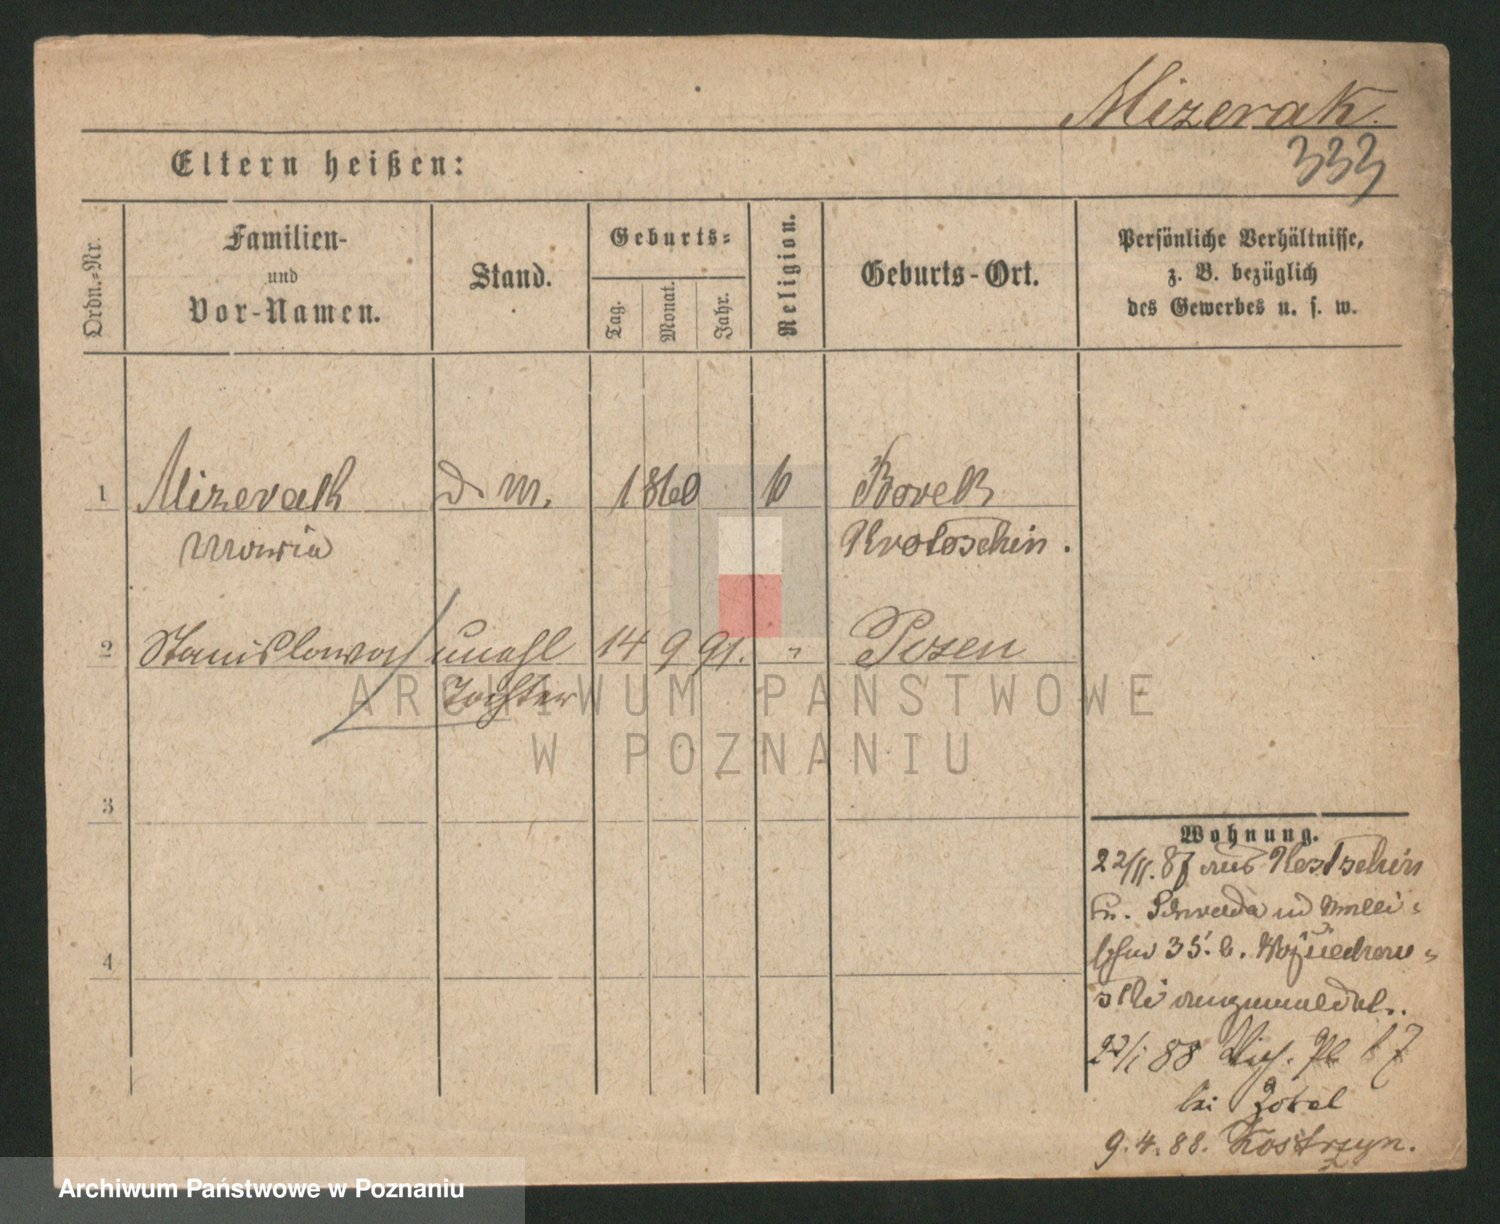 Mizerak.
333
Eltern heißen:
Ordn.-Nr.
Familien-
und
Vor-Namen.
Stand.
Geburts-
Tag.
Monat.
Jahr.
Religion.
Geburts-Ort.
Persönliche Verhältnisse,
z. B. bezüglich
des Gewerbes u. s. w.
1 Mizerak d. m. 1860 k Borek
Maria Krotoschin.
2 Stanislawa unehl 14 9 91. " Posen
Tochter
3
4
Wohnung.
22/11. 87 aus Kostschin
Kr. Schroda in
35. b.
angemeldet.
23/1 88
bei Zobel
9.4.88. Kostrzyn.
ARCHIWUM PAŃSTWOWE
W POZNANIU
Archiwum Państwowe w Poznaniu